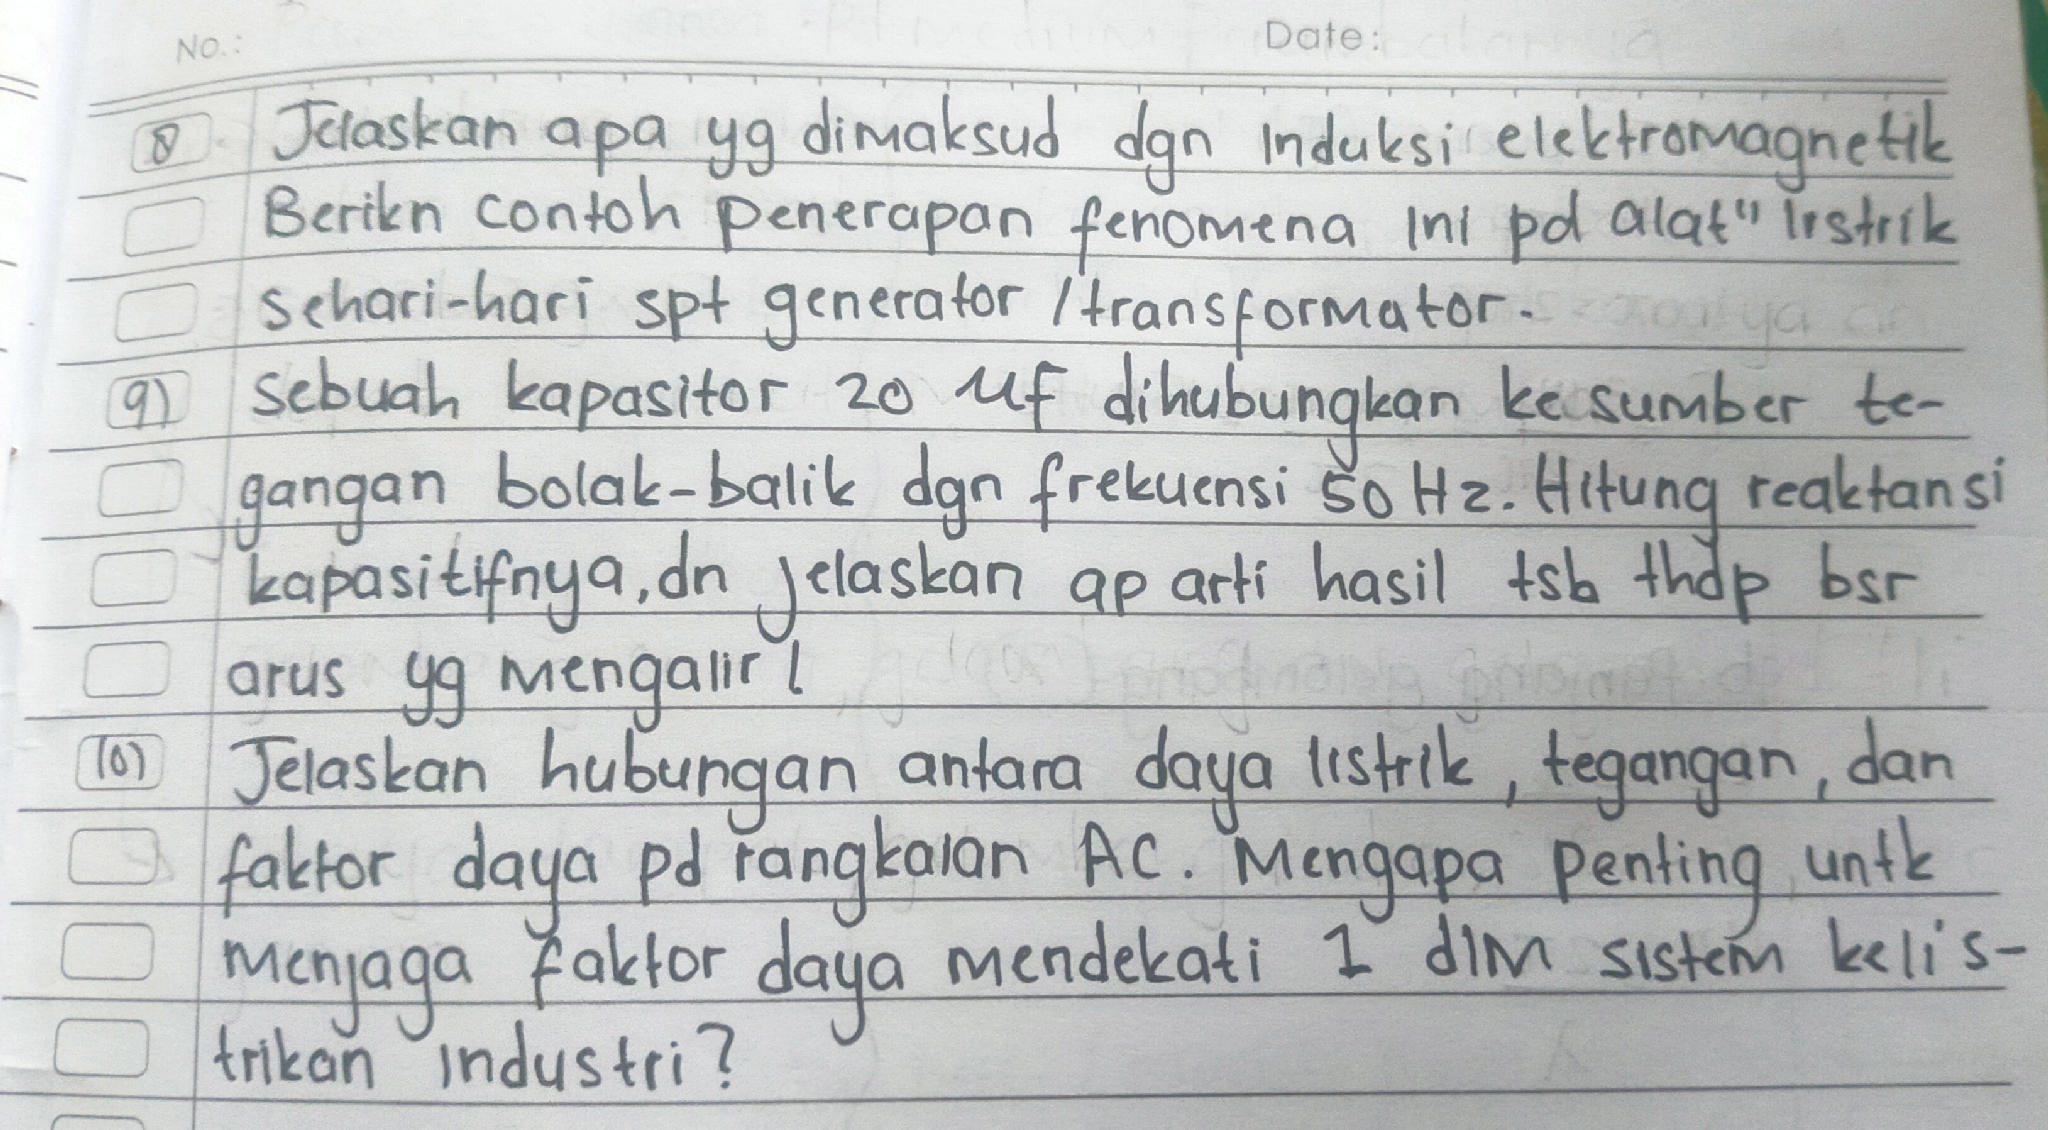 No.:
Date:
8 Jelaskan apa yg dimaksud dgn Induksi elektromagnetik
Berikn contoh penerapan fenomena ini pd alat" listrik
sehari-hari spt generator / transformator.
9) sebuah kapasitor 20 Mf dihubungkan ke sumber te-
gangan bolak-balik dgn frekuensi 50 Hz. Hitung reaktansi
kapasitifnya, dn jelaskan ap arti hasil tsb thdp bsr
arus yg mengalir!
10) Jelaskan hubungan antara daya listrik, tegangan, dan
faktor daya pd rangkaian AC. Mengapa penting untk
menjaga faktor daya mendekati 1 dlm sistem kelis-
trikan industri?